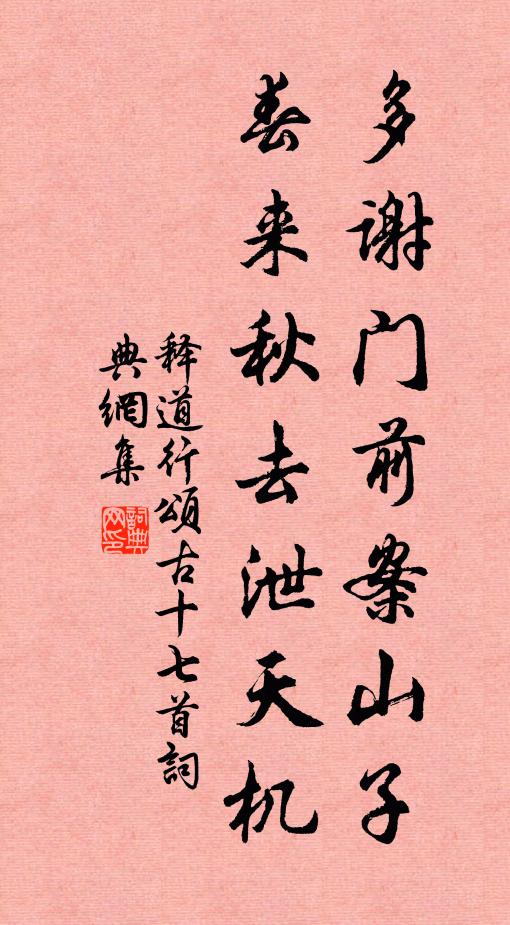 多谢门前案山子
春来秋去泄天机
释道行颂古十七首詞
典網集
詞典
网印